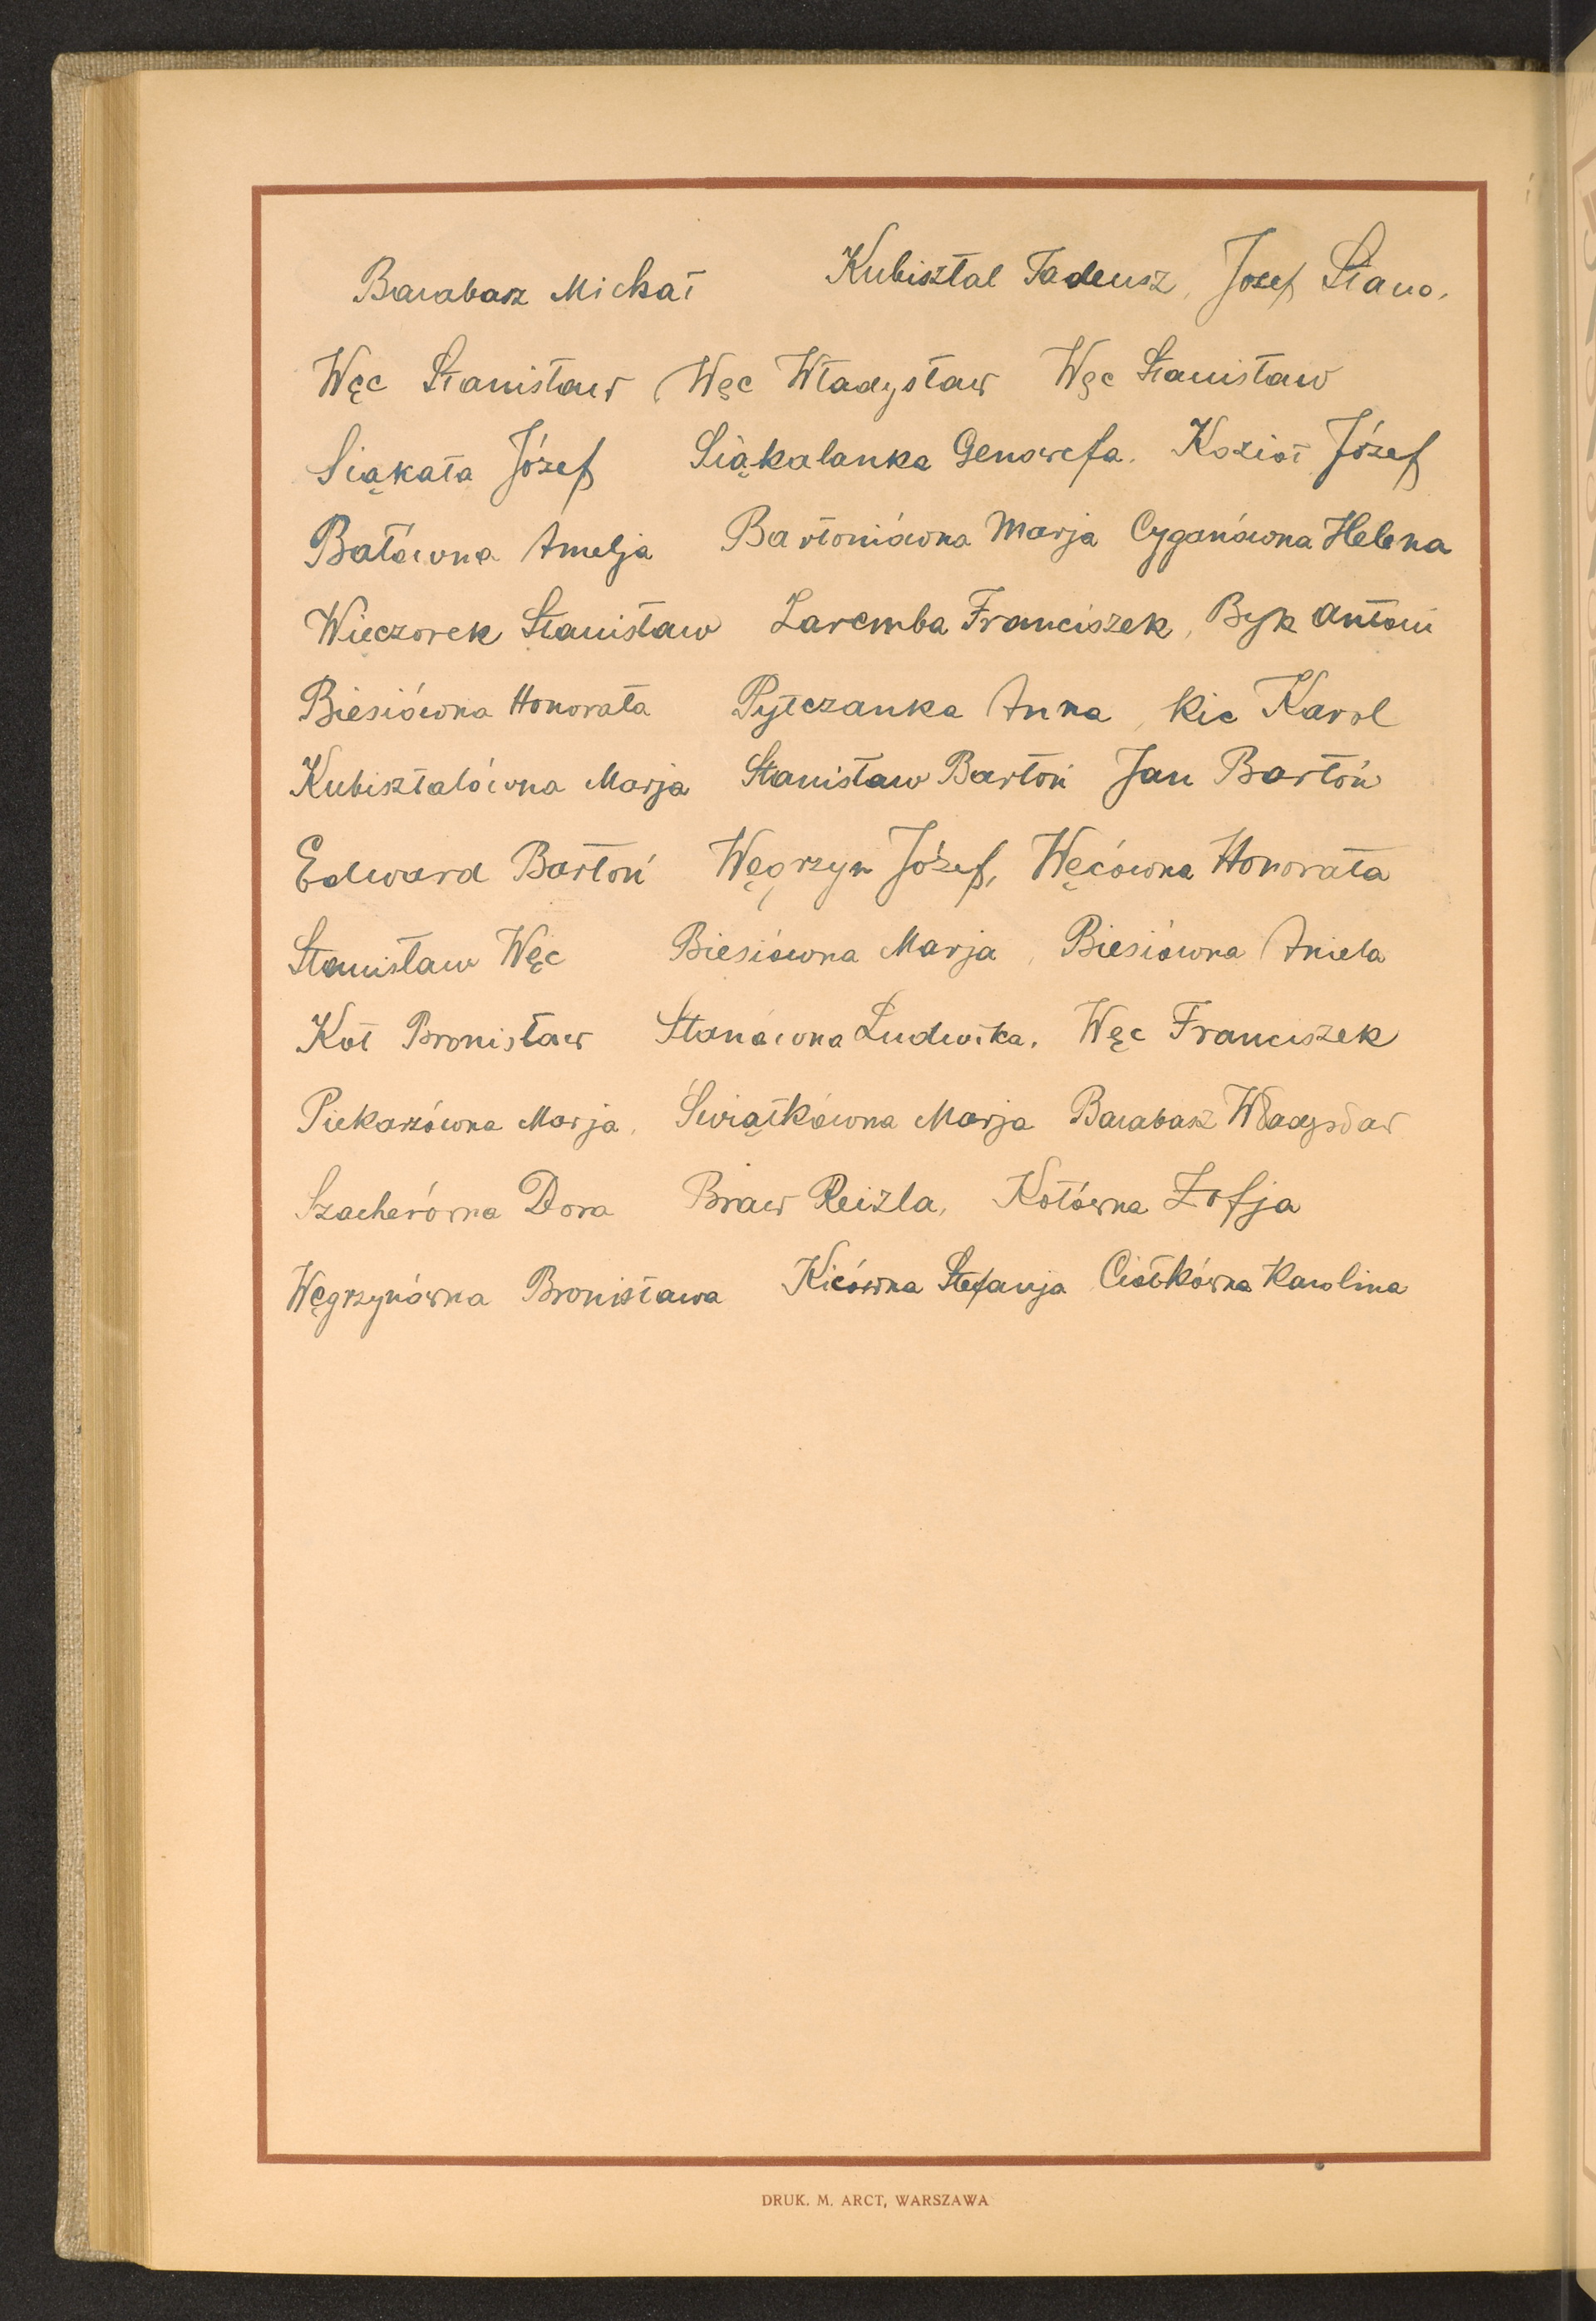 Barabasz Michał Kubisztal Tadeusz, Józef Stano.
Węc Stanisław, Węc Władysław Węc Stanisław
Siąkała Józef Siąkalanka Genowefa. Kozioł Józef
Batówna Amelja Bartoniówna Marja Cyganówna Helena
Wieczorek Stanisław Zaremba Franciszek, Byk Antoni
Biesiówna Honorata Pytczanka Anna, Kic Karol
Kubisztalówna Marja Stanisław Bartoń Jan Bartoń
Edward Bartoń Węgrzyn Józef, Węcówna Honorata
Stanisław Węc Biesiówna Marja, Biesiówna Aniela
Kot Bronisław Stanówna Ludwika. Węc Franciszek
Piekarzówna Marja, Świątkówna Marja Barabasz Władysław
Szacherówna Dora Braw Reizla, Kotówna Zofja
Węgrzynówna Bronisława Kicówna Stefanja Ciołkówna Karolina
DRUK. M. ARCT, WARSZAWA